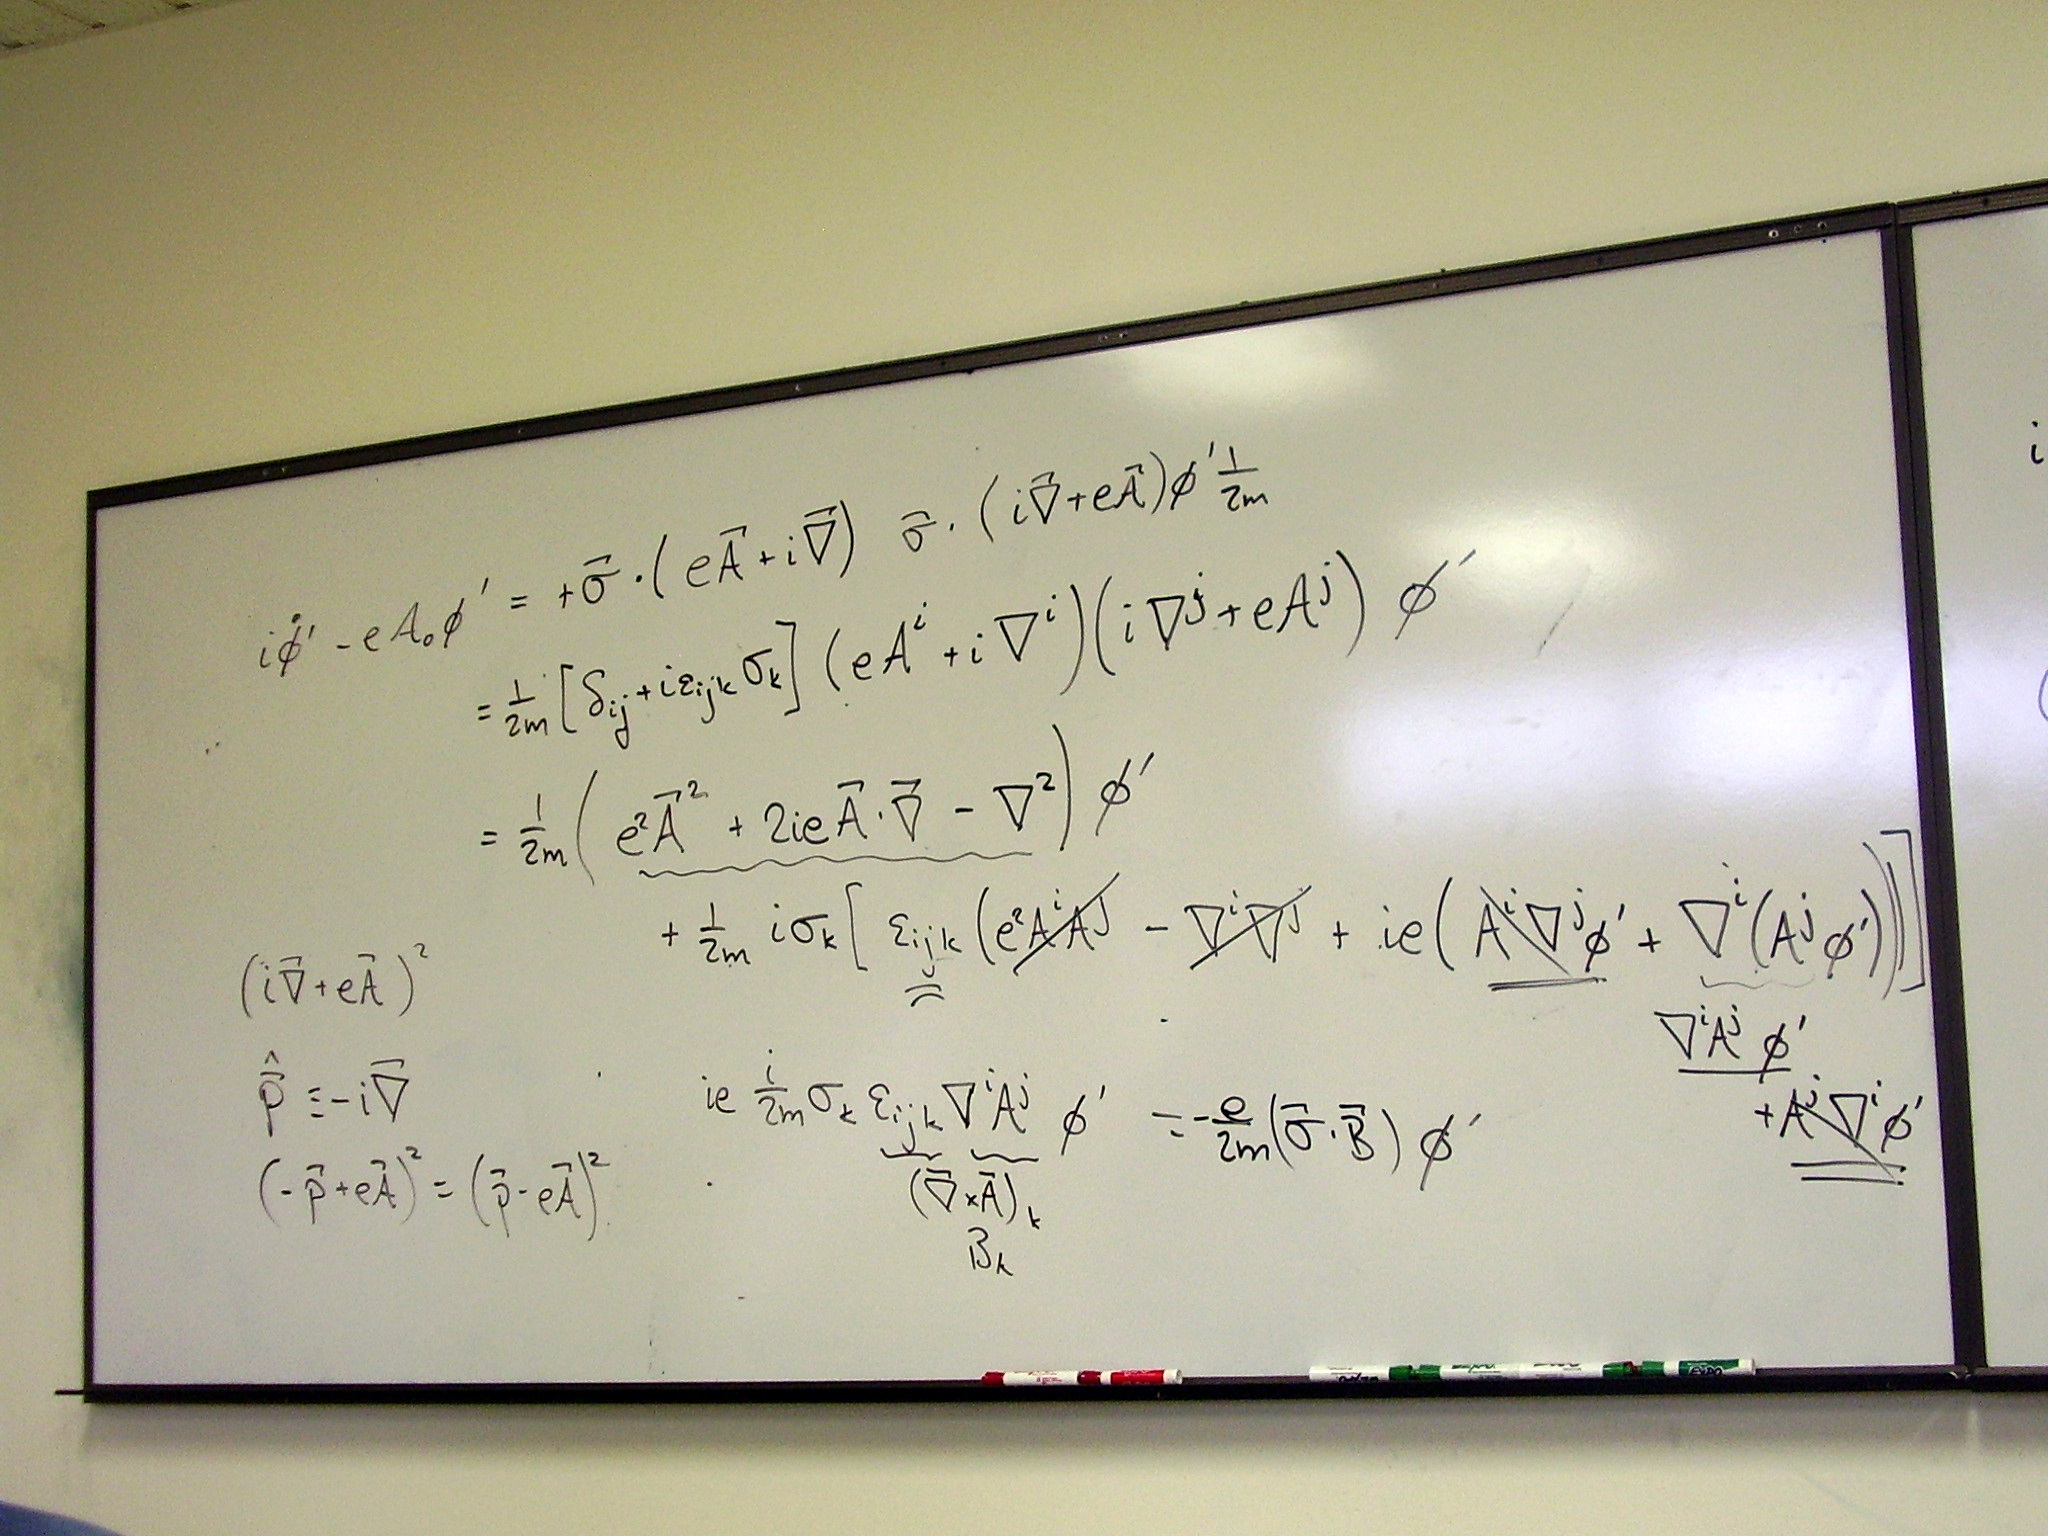 iφ̇' - eA₀φ' = +σ⃗·(eA⃗+i∇⃗) σ⃗·(i∇⃗+eA⃗)φ' 1/2m
= 1/2m [δij+iεijkσk] (eAⁱ+i∇ⁱ)(i∇ʲ+eAʲ) φ'
= 1/2m (e²A⃗² + 2ieA⃗·∇⃗ - ∇²) φ'
+ 1/2m iσk [εijk (e²AⁱAʲ - ∇ⁱ∇ʲ + ie(Aⁱ∇ʲφ' + ∇ⁱ(Aʲφ')))]
∇ⁱAʲ φ'
+Aʲ∇ⁱφ'
(i∇⃗+eA⃗)²
p̂⃗ ≡ -i∇⃗
(-p⃗+eA⃗)² = (p⃗-eA⃗)²
ie i/2m σk εijk ∇ⁱAʲ φ' = -e/2m (σ⃗·B⃗) φ'
(∇⃗×A⃗)k
Bk
i
(
EXPO